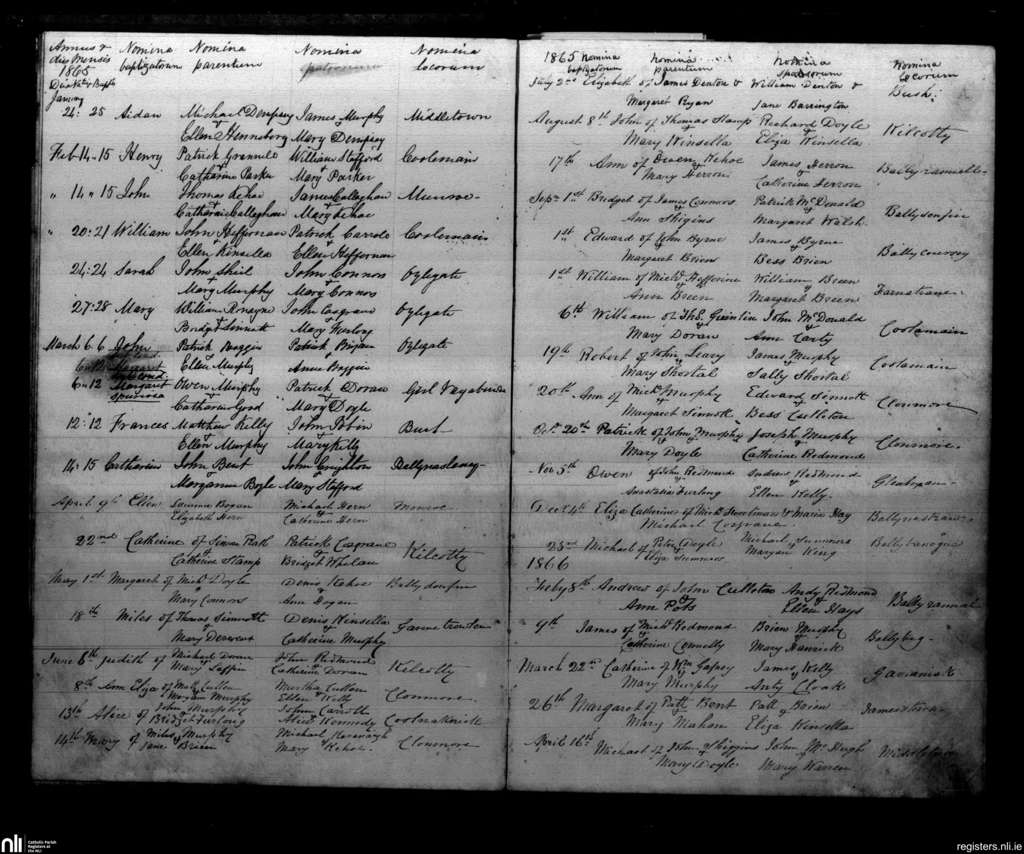 Annus & dies Mensis 1865 Nomina baptizatorum Nomina parentum Nomina patrinorum Nomina locorum
Januy
24: 25 Aidan Michael Dempsey James Murphy Middletown
& Ellen Henneberg Mary Dempsey
Feb 14.. 15 Henry Patrick William Stafford Coolemain
Catharine Parker Mary Parker
" 14 " 15 John Thomas Kehoe James Callaghan Munroe
Catharine Callaghan Mary Kehoe
" 20: 21 William John Heffernan Patrick Coolemain
Ellen Kinsella Ellen Heffernan
24: 24 Sarah John Shiel John Connors Oylegate
Mary Murphy Mary Connors
27: 28 Mary William John Cosgrave Oylegate
Bridget Sinnott Mary Furlong
March 6. 6 John Patrick Boggin Patrick Oylegate
Ellen Murphy Anne Boggin
6 .. 12 Margaret Owen Murphy Patrick Doran Girl
spuriosa Catharine Mary Doyle
12: 12 Frances Matthew Kelly John Tobin
Ellen Murphy Mary Kelly
14: 15 Catharin John Bent John Creighton Ballynaslaney
Moryanne Boyle Mary Stafford
April 9th Ellen Bogan Michael Hern Monroe
Elizabeth Hern Catherine Hern
22nd Catherine of Patrick Cosgrave Kilcotty
Catherine Stamp Bridget Whelan
May 1st Margaret of Michl Doyle Denis Kehoe Ballydonfin
Mary Connors Ann Hogan
18th Miles of Thomas Sinnott Denis Kinsella
Mary Devereux Catherine Murphy
June 5th Judith of Michael Doran John Redmond Kilcotty
Mary Catherine Doran
8th Ann Eliza of Michl Cullen Martha Cullen Clonmore
Moryan Murphy Ellen
13th Alice of John Murphy John Carroll
Bridget Furlong Alice Kennedy
14th Mary of Miles Murphy Michael Kavanagh Clonmore
Jane Brien Mary Kehoe
1865 Nomina baptizatorum Nomina parentium Nomina sponsorum Nomina locorum
July 2nd Elizabeth of James Denton & William Denton & Bush:
Margaret Ryan Jane Barrington
August 8th John of Thomas Stamp Richard Doyle Kilcotty
Mary Kinsella Eliza Kinsella
17th Ann of Owen Kehoe James Herron
Mary Herron Catherine Herron
Sepr 1st Bridget of James Connors Patrick McDonald Ballydonfin
Ann Higgins Margaret Walsh
1st Edward of John Byrne James Byrne
Margaret Brien Bess Brien
1st William of Michl Hefferine William Breen
Ann Breen Margaret Breen
6th William of Ths. John McDonald Coolamain
Mary Doran Ann Carty
19th Robert of John Leary James Murphy Coolamain
Mary Shortal Sally Shortal
20th Ann of Michl Murphy Edward Sinnott Clonmore
Margaret Sinnott Bess Culleton
Oct. 20th Patrick of John Murphy Joseph Murphy Clonmore
Mary Doyle Catherine Redmond
Nov 5th Owen of John Redmond Andrew Redmond
Anastatia Furlong Ellen Kelly
Decr 4th Eliza Catherine of Michl & Maria Hay
Michael Cosgrave
25th Michael of Peter Doyle Michael Summers
Eliza Summers Maryan King
1866
Feby 8th Andrew of John Culloton Andy Redmond
Ann Potts Ellen Hays
9th James of Michl Redmond Brien Murphy Bellybeg
Catherine Connolly Mary Hanrick
March 22nd Catherine of Wm James Kelly
Mary Murphy Anty Cloak
26th Margaret of Patk Bent Patt Brien
Mary Mahon Eliza Kinsella
April 16th Michael of John Higgins John McHugh
Mary Doyle Mary Warren
nli Catholic Parish Registers at the NLI
registers.nli.ie